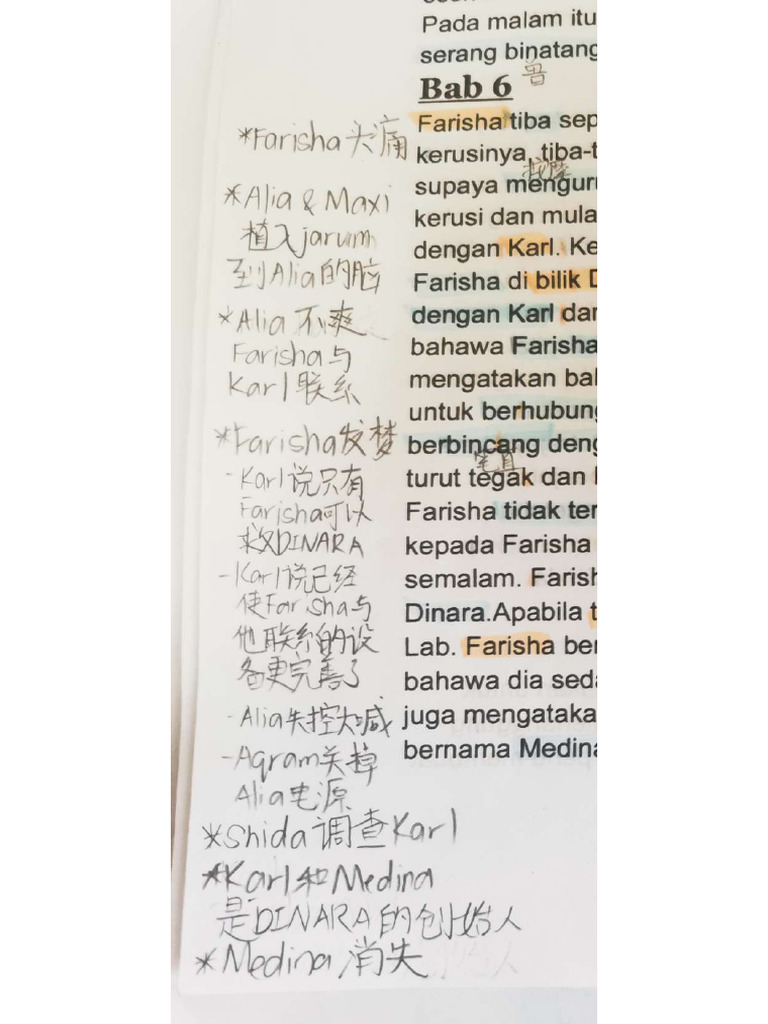 Pada malam itu
serang binatang
兽
Bab 6
*Farisha头痛
*Alia & Maxi
植入jarum
到Alia的脑
*Alia不爽
Farisha与
Karl联系
*Farisha发梦
-Karl说只有
Farisha可以
救DINARA
-Karl说已经
使Farisha与
他联系的设
备更完善了
-Alia失控大喊
-Aqram关掉
Alia电源
*Shida调查Karl
*Karl和Medina
是DINARA的创始人
*Medina消失
Farisha tiba sep
kerusinya, tiba-t
按摩
supaya mengur
kerusi dan mula
dengan Karl. Ke
Farisha di bilik D
dengan Karl dar
bahawa Farisha
mengatakan bah
untuk berhubung
berbincang deng
笔直
turut tegak dan
Farisha tidak ter
kepada Farisha
semalam. Farish
Dinara.Apabila t
Lab. Farisha ber
bahawa dia seda
juga mengataka
bernama Medina